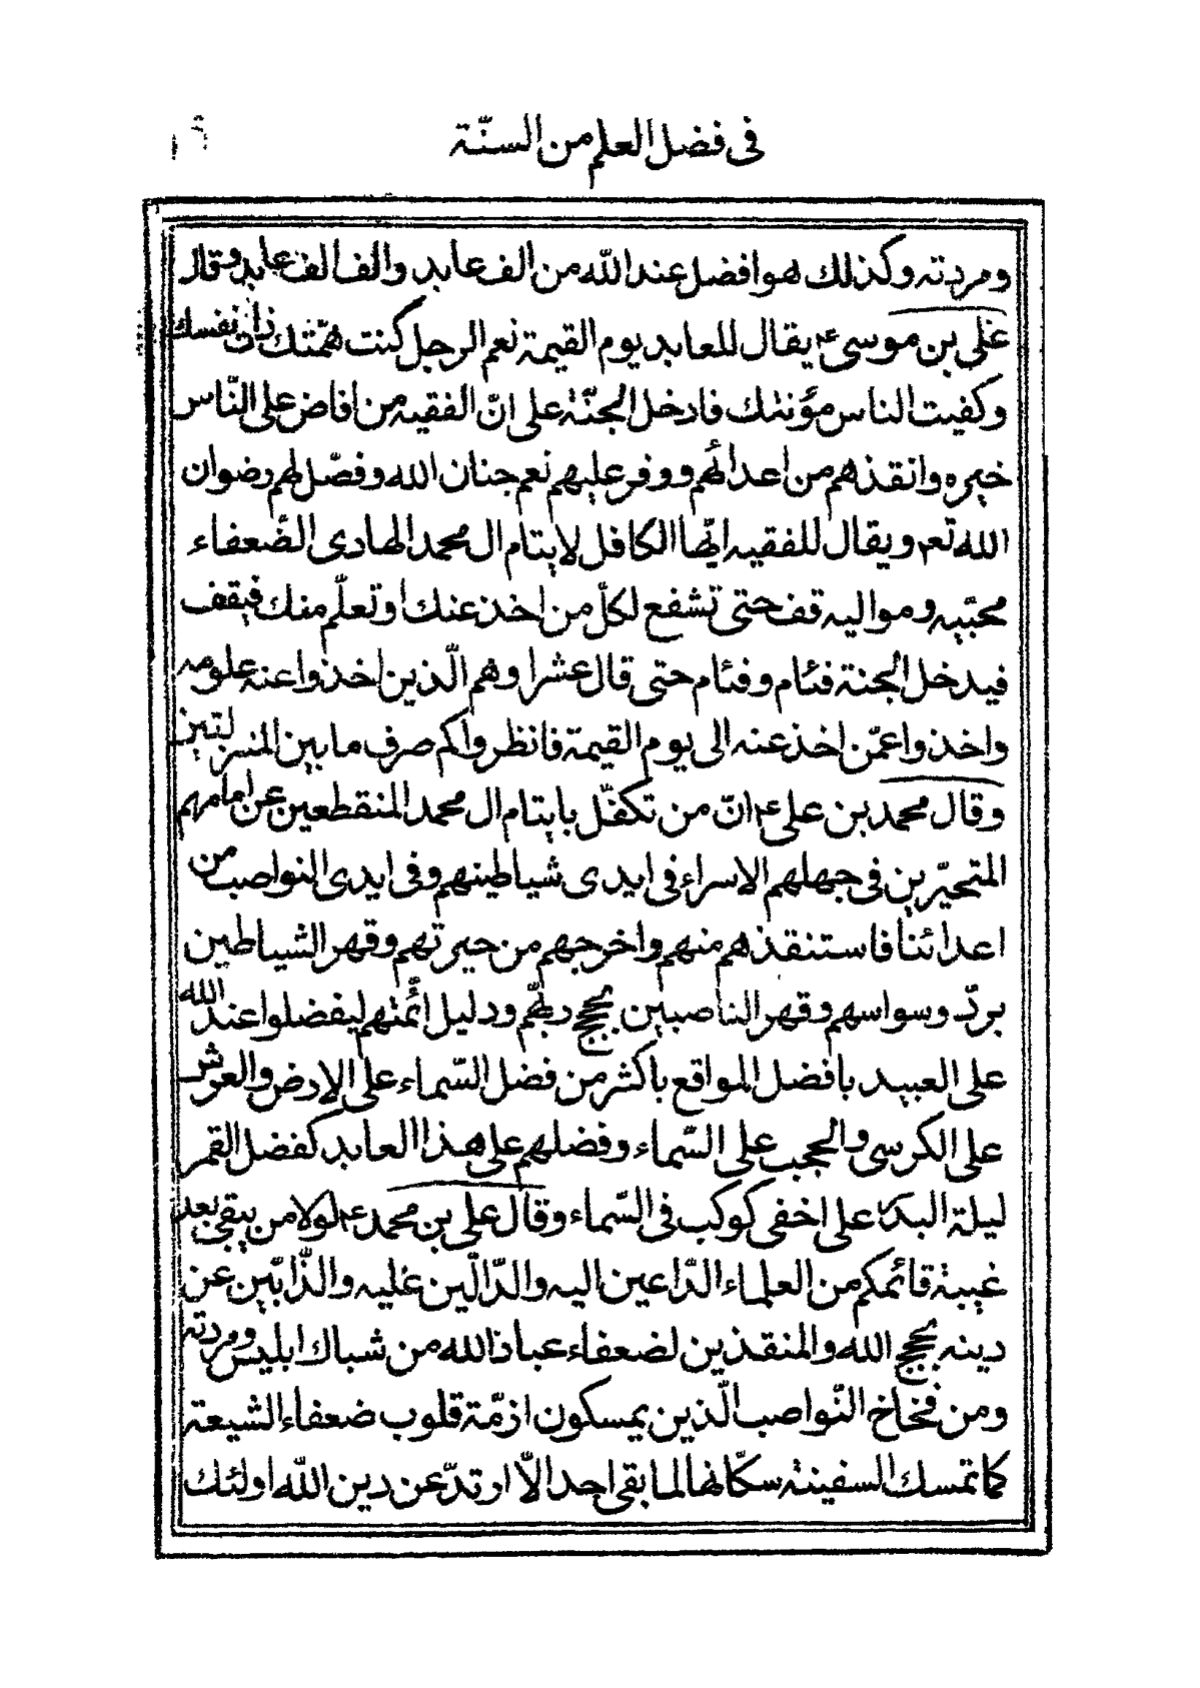 فى فضل العلم من السنّة
ومردته وكذلك هو افضل عند اللّه من الف عابد والف الف عابد وقال
على بن موسى ع يقال للعابد يوم القيمة نعم الرجل كنت همّتك ذات نفسك
وكفيت الناس مؤنتك فادخل الجنّة على انّ الفقيه من افاض على النّاس
خيره وانقذهم من اعدائهم ووفر عليهم نعم جنان الله وفصّل لهم رضوان
الله تعم ويقال للفقيه ايّها الكافل لايتام ال محمد الهادى الضّعفاء
محبّيه ومواليه قف حتى تشفع لكلّ من اخذ عنك او تعلّم منك فيقف
فيدخل الجنة فئام وفئام حتى قال عشرا وهم الّذين اخذوا عنه علومه
واخذوا عمّن اخذ عنه الى يوم القيمة فانظروا كم صرف ما بين المنزلتين
وقال محمد بن على ع انّ من تكفّل بايتام ال محمد المنقطعين عن امامهم
المتحيّرين فى جهلهم الاسراء فى ايدى شياطينهم وفى ايدى النواصب من
اعدائنا فاستنقذهم منهم واخرجهم من حيرتهم وقهر الشياطين
بردّ وسواسهم وقهر الناصبين بحجج ربهّم ودليل ائمّتهم ليفضلوا عند الله
على العبيد بافضل المواقع باكثر من فضل السّماء على الارض والعرش
على الكرسى والحجب على السّماء وفضلهم على هذا العابد كفضل القمر
ليلة البدر على اخفى كوكب فى السّماء وقال على بن محمد ع لولا من يبقى بعد
غيبة قائمكم من العلماء الدّاعين اليه والدّالّين عليه والذّابّين عن
دينه بحجج الله والمنقذين لضعفاء عباد الله من شباك ابليس ومردته
ومن فخاخ النّواصب الّذين يمسكون ازمّة قلوب ضعفاء الشيعة
كما تمسك السفينة سكّانها لما بقى احد الاّ ارتدّ عن دين اللّه اولئك